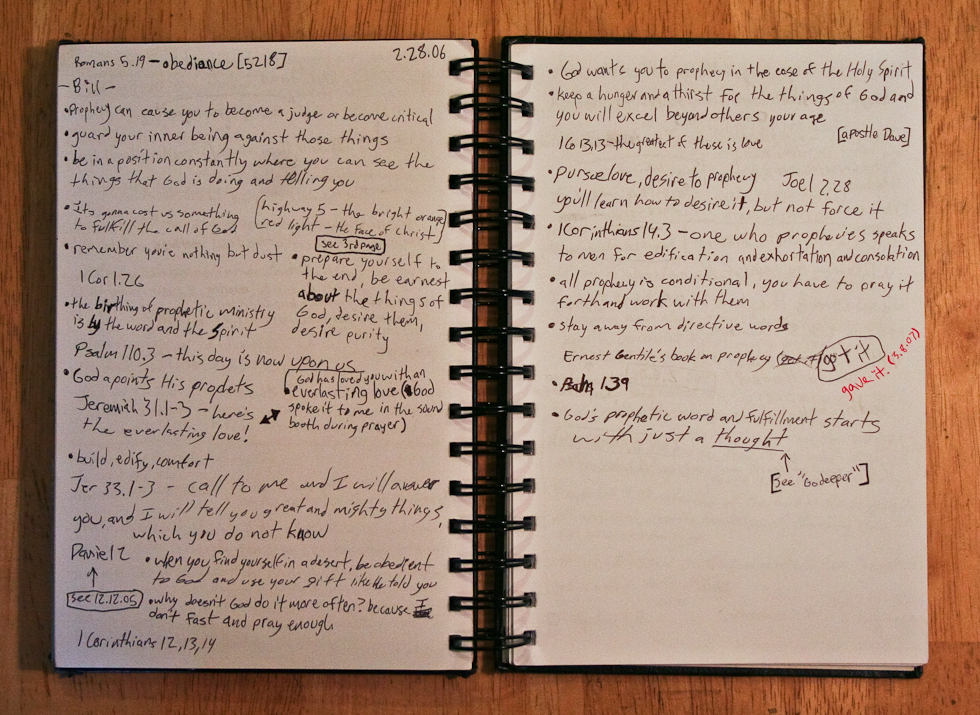 Romans 5.19 - obediance [5218]
2.28.06
- Bill -
• Prophecy can cause you to become a judge or become critical
• guard your inner being against those things
• be in a position constantly where you can see the
things that God is doing and telling you
• Its gonna cost us something
to fulfill the call of God
[highway 5 - the bright orange
red light - the face of christ]
see 3rd page
• remember you're nothing but dust
1 Cor 1.26
• prepare yourself to
the end, be earnest
about the things of
God, desire them,
desire purity
• the birthing of prophetic ministry
is by the word and the Spirit
Psalm 110.3 - this day is now upon us
• God apoints His prophets
Jeremiah 31.1-3 - here's
the everlasting love!
God has loved you with an
• everlasting love (God
spoke it to me in the sound
booth during prayer)
• build, edify, comfort
Jer 33.1-3 - call to me and I will answer
you, and I will tell you great and mighty things,
which you do not know
Daniel 2
see 12.12.05
• when you find yourself in a desert, be obedient
to God and use your gift like He told you
• why doesn't God do it more often? because I
don't fast and pray enough
1 Corinthians 12, 13, 14
• God wants you to prophecy in the ease of the Holy Spirit
• keep a hunger and a thirst for the things of God and
you will excel beyond others your age
[apostle Dave]
1 Co 13.13 - the greatest of these is love
• pursue love, desire to prophecy Joel 2.28
you'll learn how to desire it, but not force it
• 1 Corinthians 14.3 - one who prophecies speaks
to men for edification and exhortation and consolation
• all prophecy is conditional, you have to pray it
forth and work with them
• stay away from directive words
Ernest Gentile's book on prophecy (get it) got it
gave it. (3.8.07)
• Psalm 139
• God's prophetic word and fulfillment starts
with just a thought
[see "Go deeper"]